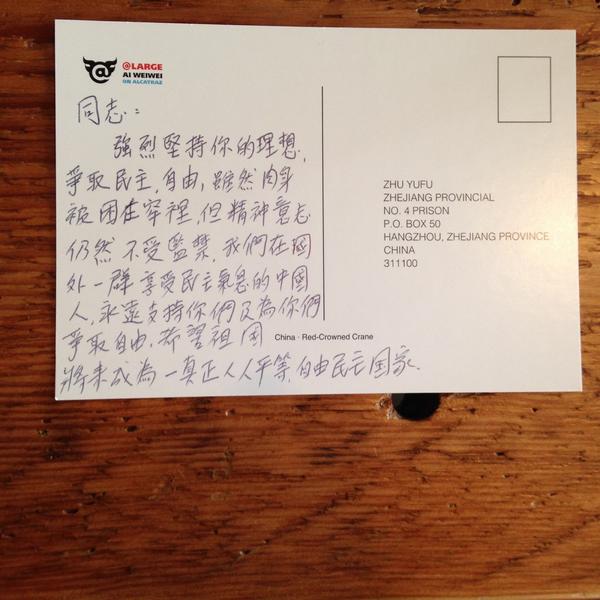 @LARGE
AI WEIWEI
ON ALCATRAZ
同志：
強烈堅持你的理想,
爭取民主,自由,雖然肉身
被困在牢裡,但精神意志
仍然不受監禁,我們在國
外一群享受民主氣息的中國
人,永遠支持你們及為你們
爭取自由,希望祖國
將來成為一真正人人平等,自由民主国家.
ZHU YUFU
ZHEJIANG PROVINCIAL
NO. 4 PRISON
P.O. BOX 50
HANGZHOU, ZHEJIANG PROVINCE
CHINA
311100
China · Red-Crowned Crane